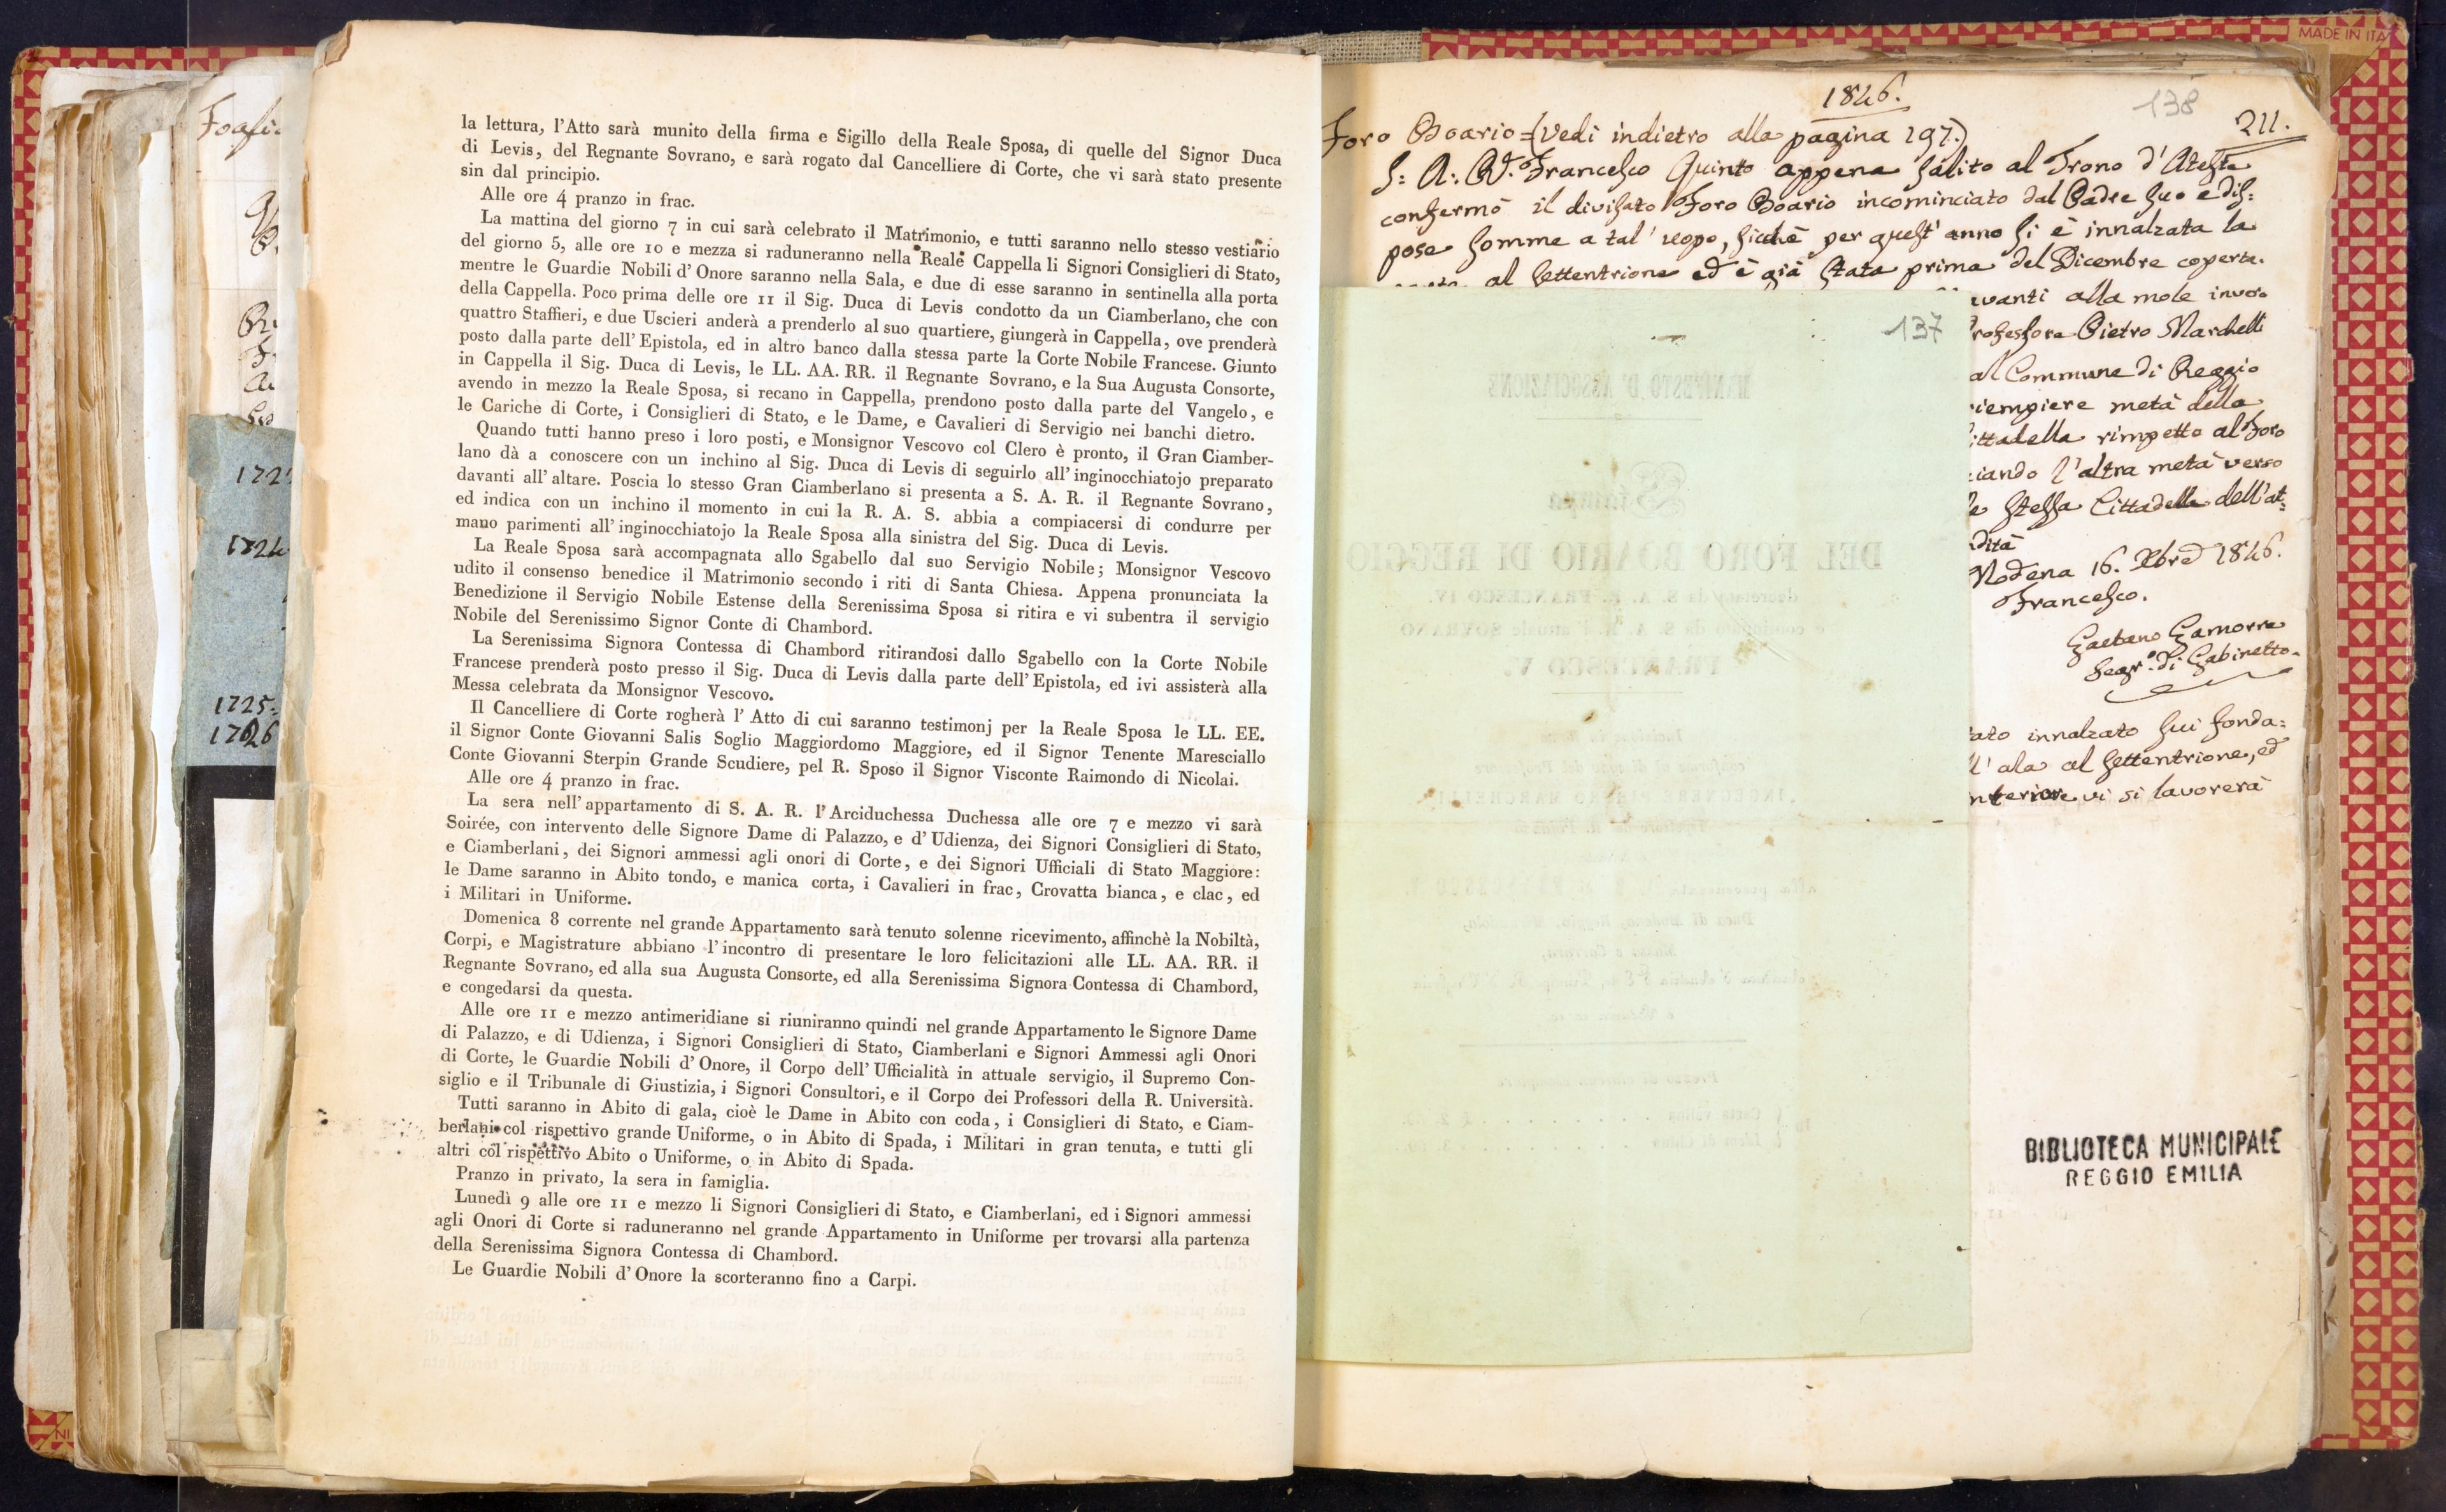 la lettura, l'Atto sarà munito della firma e Sigillo della Reale Sposa, di quelle del Signor Duca
di Levis, del Regnante Sovrano, e sarà rogato dal Cancelliere di Corte, che vi sarà stato presente
sin dal principio.
Alle ore 4 pranzo in frac.
La mattina del giorno 7 in cui sarà celebrato il Matrimonio, e tutti saranno nello stesso vestiario
del giorno 5, alle ore 10 e mezza si raduneranno nella Reale Cappella li Signori Consiglieri di Stato,
mentre le Guardie Nobili d'Onore saranno nella Sala, e due di esse saranno in sentinella alla porta
della Cappella. Poco prima delle ore 11 il Sig. Duca di Levis condotto da un Ciamberlano, che con
quattro Staffieri, e due Uscieri anderà a prenderlo al suo quartiere, giungerà in Cappella, ove prenderà
posto dalla parte dell'Epistola, ed in altro banco dalla stessa parte la Corte Nobile Francese. Giunto
in Cappella il Sig. Duca di Levis, le LL. AA. RR. il Regnante Sovrano, e la Sua Augusta Consorte,
avendo in mezzo la Reale Sposa, si recano in Cappella, prendono posto dalla parte del Vangelo, e
le Cariche di Corte, i Consiglieri di Stato, e le Dame, e Cavalieri di Servigio nei banchi dietro.
Quando tutti hanno preso i loro posti, e Monsignor Vescovo col Clero è pronto, il Gran Ciamber-
lano dà a conoscere con un inchino al Sig. Duca di Levis di seguirlo all'inginocchiatojo preparato
davanti all'altare. Poscia lo stesso Gran Ciamberlano si presenta a S. A. R. il Regnante Sovrano,
ed indica con un inchino il momento in cui la R. A. S. abbia a compiacersi di condurre per
mano parimenti all'inginocchiatojo la Reale Sposa alla sinistra del Sig. Duca di Levis.
La Reale Sposa sarà accompagnata allo Sgabello dal suo Servigio Nobile; Monsignor Vescovo
udito il consenso benedice il Matrimonio secondo i riti di Santa Chiesa. Appena pronunciata la
Benedizione il Servigio Nobile Estense della Serenissima Sposa si ritira e vi subentra il servigio
Nobile del Serenissimo Signor Conte di Chambord.
La Serenissima Signora Contessa di Chambord ritirandosi dallo Sgabello con la Corte Nobile
Francese prenderà posto presso il Sig. Duca di Levis dalla parte dell'Epistola, ed ivi assisterà alla
Messa celebrata da Monsignor Vescovo.
Il Cancelliere di Corte rogherà l'Atto di cui saranno testimonj per la Reale Sposa le LL. EE.
il Signor Conte Giovanni Salis Soglio Maggiordomo Maggiore, ed il Signor Tenente Maresciallo
Conte Giovanni Sterpin Grande Scudiere, pel R. Sposo il Signor Visconte Raimondo di Nicolai.
Alle ore 4 pranzo in frac.
La sera nell'appartamento di S. A. R. l'Arciduchessa Duchessa alle ore 7 e mezzo vi sarà
Soirée, con intervento delle Signore Dame di Palazzo, e d'Udienza, dei Signori Consiglieri di Stato,
e Ciamberlani, dei Signori ammessi agli onori di Corte, e dei Signori Ufficiali di Stato Maggiore:
le Dame saranno in Abito tondo, e manica corta, i Cavalieri in frac, Crovatta bianca, e clac, ed
i Militari in Uniforme.
Domenica 8 corrente nel grande Appartamento sarà tenuto solenne ricevimento, affinchè la Nobiltà,
Corpi, e Magistrature abbiano l'incontro di presentare le loro felicitazioni alle LL. AA. RR. il
Regnante Sovrano, ed alla sua Augusta Consorte, ed alla Serenissima Signora Contessa di Chambord,
e congedarsi da questa.
Alle ore 11 e mezzo antimeridiane si riuniranno quindi nel grande Appartamento le Signore Dame
di Palazzo, e di Udienza, i Signori Consiglieri di Stato, Ciamberlani e Signori Ammessi agli Onori
di Corte, le Guardie Nobili d'Onore, il Corpo dell'Ufficialità in attuale servigio, il Supremo Con-
siglio e il Tribunale di Giustizia, i Signori Consultori, e il Corpo dei Professori della R. Università.
Tutti saranno in Abito di gala, cioè le Dame in Abito con coda, i Consiglieri di Stato, e Ciam-
berlani col rispettivo grande Uniforme, o in Abito di Spada, i Militari in gran tenuta, e tutti gli
altri col rispettivo Abito o Uniforme, o in Abito di Spada.
Pranzo in privato, la sera in famiglia.
Lunedì 9 alle ore 11 e mezzo li Signori Consiglieri di Stato, e Ciamberlani, ed i Signori ammessi
agli Onori di Corte si raduneranno nel grande Appartamento in Uniforme per trovarsi alla partenza
della Serenissima Signora Contessa di Chambord.
Le Guardie Nobili d'Onore la scorteranno fino a Carpi.
1724
1725
1726
1846.
138
211.
Foro Boario = (Vedi indietro alla pagina 197.)
S: A: R. Francesco Quinto appena salito al Trono d'Ateste
confermò il divisato Foro Boario incominciato dal Padre suo e dis=
pose somme a tal' uopo, sicchè per quest' anno si è innalzata la
al settentrione ed è già stata prima del Dicembre coperta.
avanti alla mole invo=
rofessore Pietro Marchelli
al Commune di Reggio
iempiere metà della
ittadella rimpetto al Foro
ciando l'altra metà verso
stessa Cittadella dell'at=
dità
Modena 16. Xbre 1846.
Francesco.
Gaetano Gamorra
Segr.o di Gabinetto.
ato innalzato sui fonda=
l' ala al settentrione, ed
nteriore vi si lavorerà
137
MANIFESTO D'ASSOCIAZIONE
DEL FORO BOARIO DI REGGIO
FRANCESCO V.
BIBLIOTECA MUNICIPALE
REGGIO EMILIA
MADE IN ITA